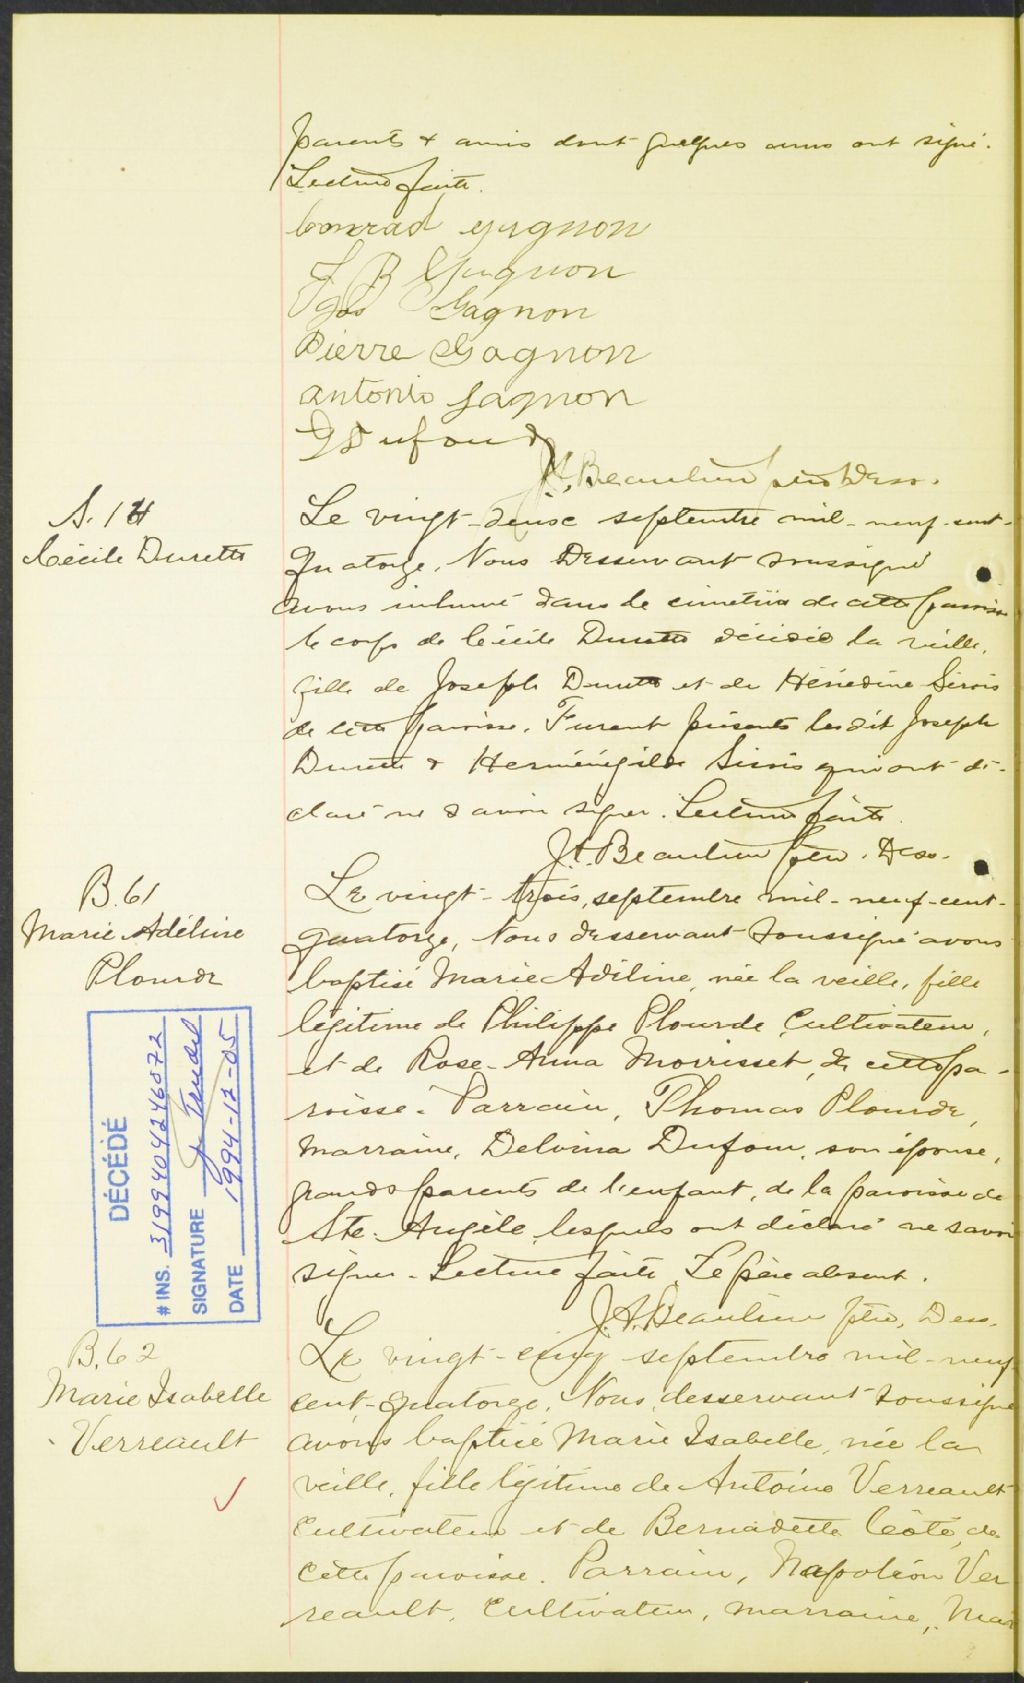 parents & amis dont quelques uns ont signé.
Lecture faite.
Conrad Gagnon
J B Gagnon
Jos Gagnon
Pierre Gagnon
antonio Gagnon
Dufour
J.A. Beaulieu ptre Dess.
S. 14
Cécile Durette
Le vingt-deux septembre mil-neuf-cent-
quatorze, Nous Desservant soussigné
avons inhumé dans le cimetière de cette paroisse
le corps de Cécile Durette décédée la veille,
fille de Joseph Durette et de Hérédine Sirois
de cette paroisse. Furent présents le dit Joseph
Durette & Herménégilde Sirois qui ont dé-
claré ne savoir signer. Lecture faite.
J.A. Beaulieu ptre. Dess.
B. 61
Marie Adéline
Plourde
Le vingt-trois, septembre mil-neuf-cent-
quatorze, Nous desservant soussigné avons
baptisé Marie Adéline, née la veille, fille
légitime de Philippe Plourde, Cultivateur,
et de Rose-Anna Morrisset, de cette pa-
roisse. Parrain, Thomas Plourde,
marraine, Delvina Dufour, son épouse,
grands parents de l'enfant, de la paroisse de
Ste. Angèle, lesquels ont déclaré ne savoir
signer. Lecture faite. Le père absent.
J.A. Beaulieu ptre, Dess.
DÉCÉDÉ
# INS. 3199404246072
SIGNATURE Y Trudel
DATE 1994-12-05
B. 62
Marie Isabelle
Verreault
Le vingt-cinq septembre mil-neuf
cent-quatorze, Nous, desservant soussigné
avons baptisé Marie Isabelle, née la
veille, fille légitime de Antoine Verreault
Cultivateur et de Bernadette Côté, de
cette paroisse. Parrain, Napoléon Ver
reault, Cultivateur, marraine, Mar